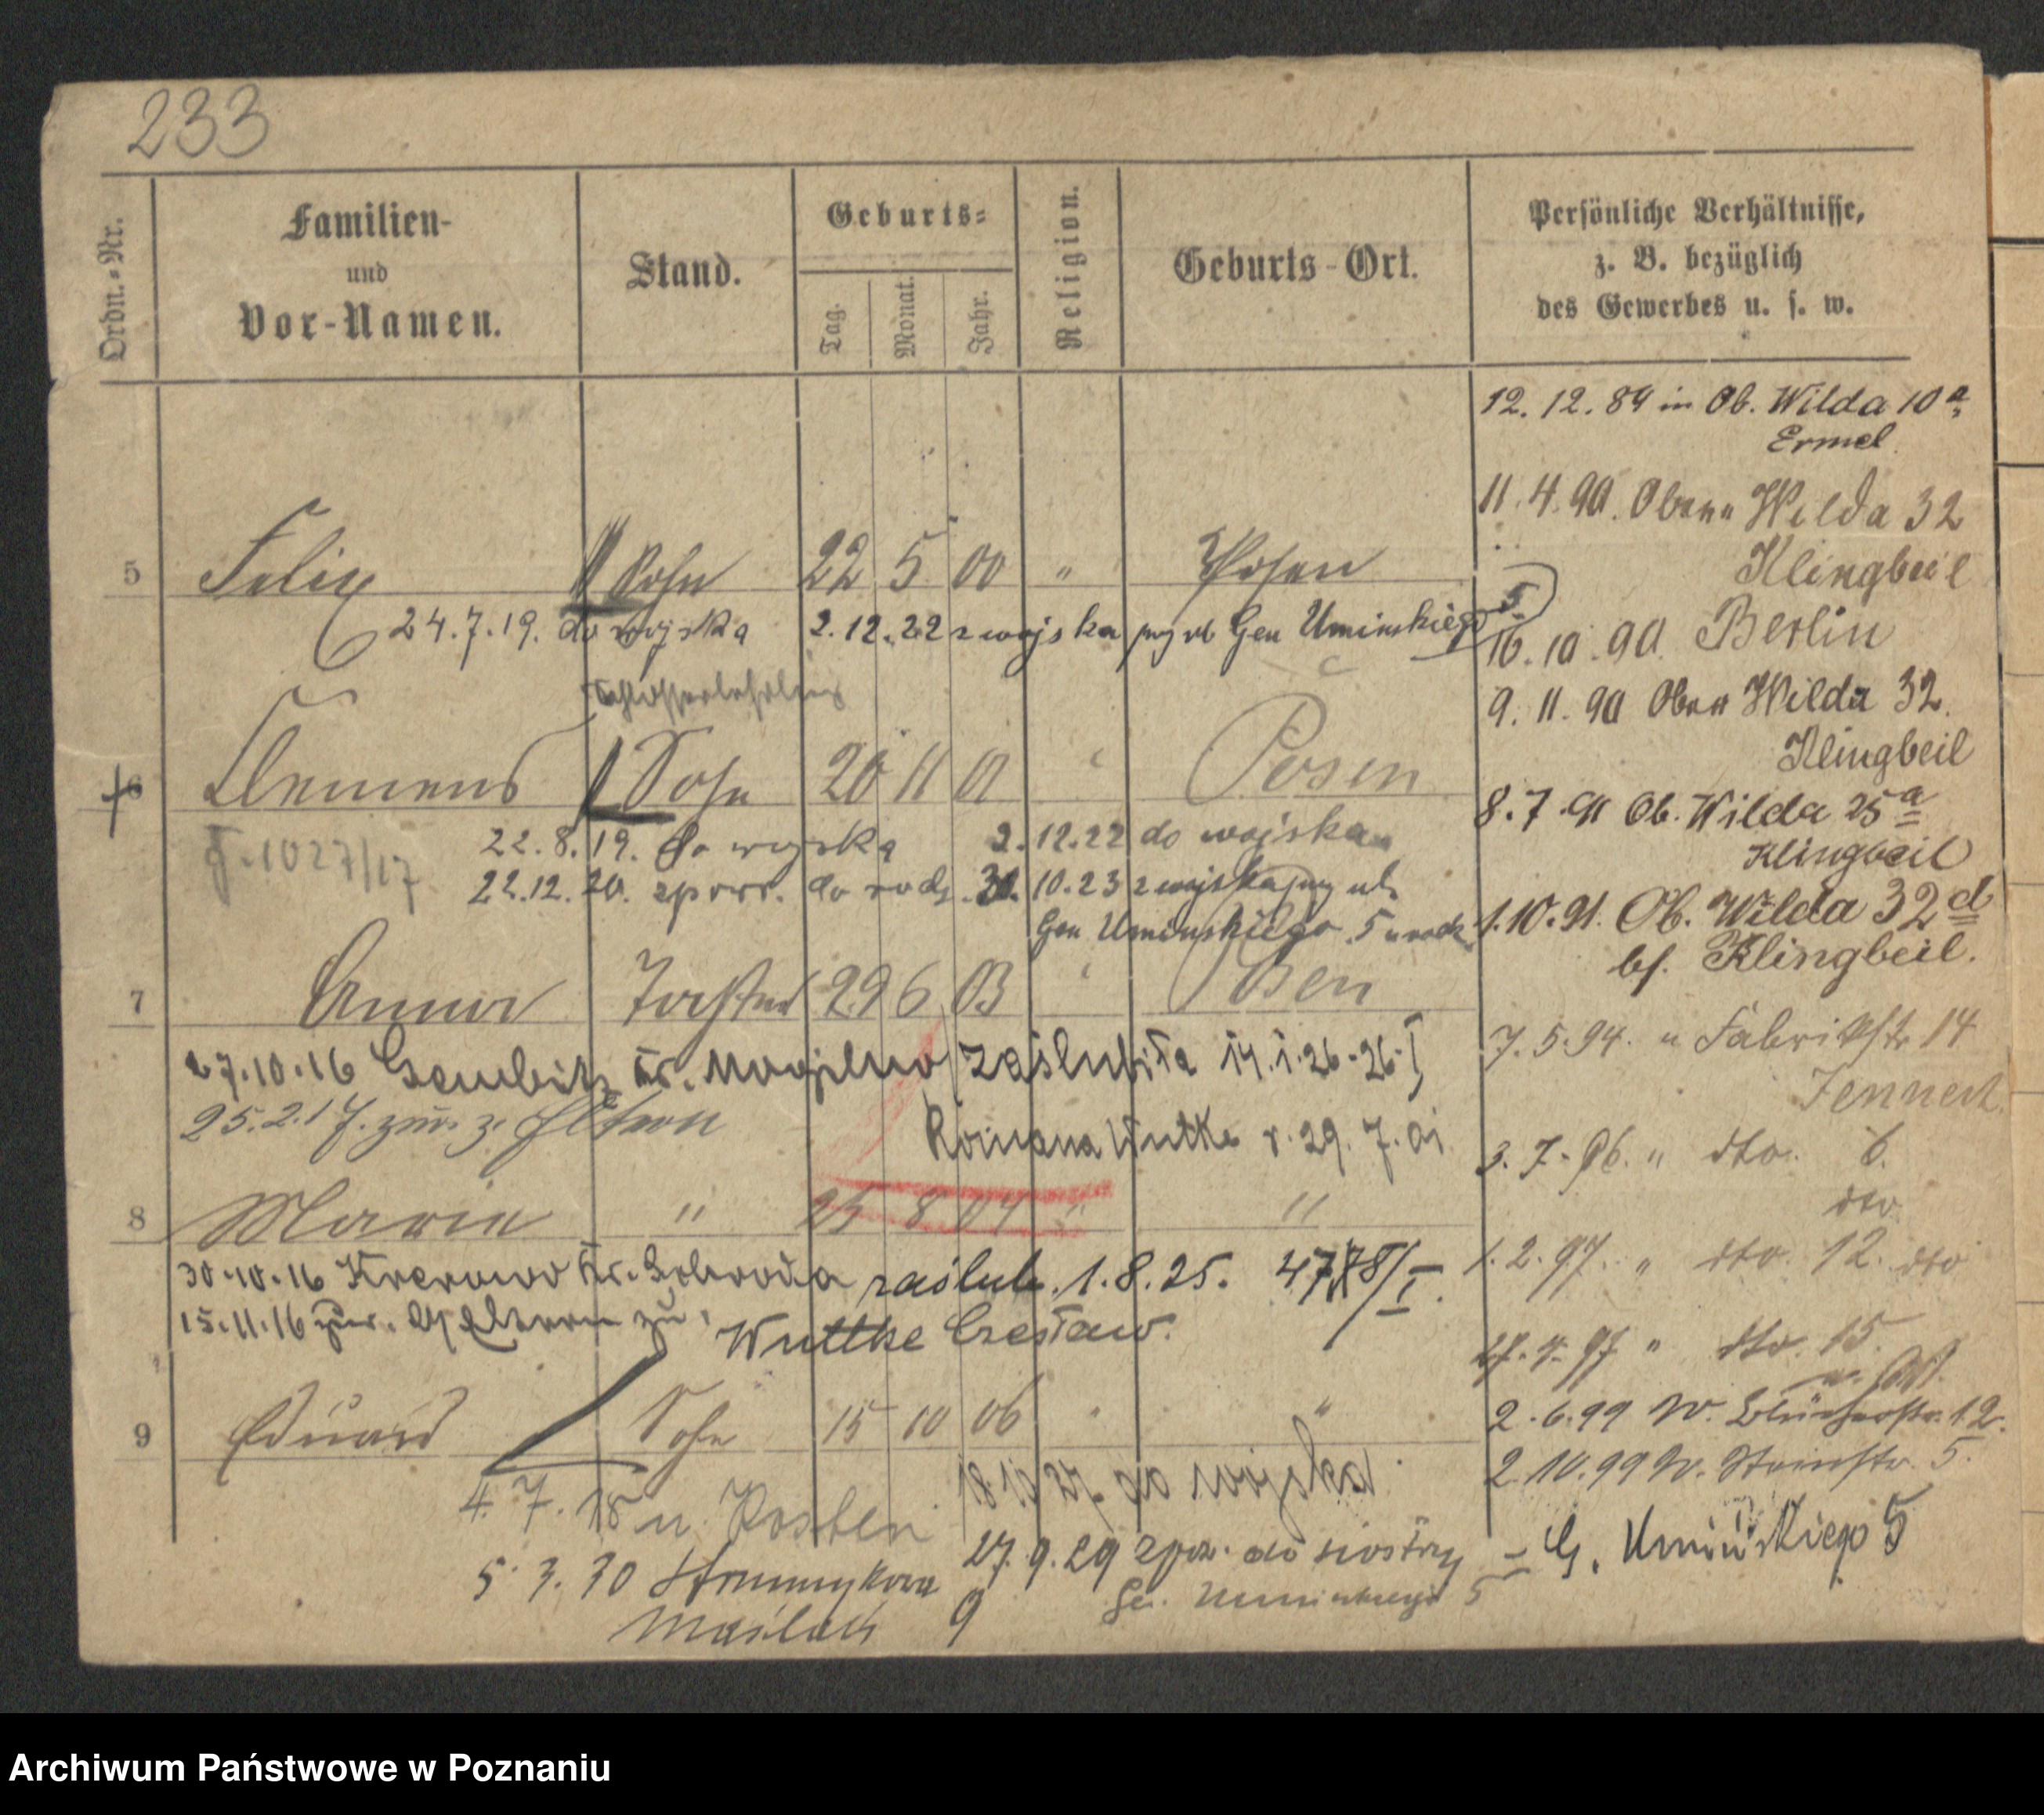 233
Ordn.-Nr.
Familien-
und
Vor-Namen.
Stand.
Geburts-
Tag.
Monat.
Jahr.
Religion.
Geburts-Ort.
Persönliche Verhältnisse,
z. B. bezüglich
des Gewerbes u. s. w.
5 Felix Sohn 22 5 00 " Posen
24.7.19. do wojska 2.12.22 z wojska Gen Uminskiego 5
Schlosserlehrling
6 Clemens Sohn 20 11 01 " Posen
J. 1027/17
22.8.19. do wojska 2.12.22 do wojska
22.12.20. do 30.10.23 z wojska ul.
Gen Uminskiego 5
7 Anna Tochter 29 6 03 " Posen
27.10.16 Gembitz Kr. Mogilno zaślubiła 14.1.26-26.I
25.2.17. zur. z. Eltern Romana Wutke r. 29.7.01
8 Marie " 25 8 04 " "
30.10.16 Kr. Schroda zaślub. 1.8.25. I.
15.11.16 zur. Eltern zu. Wuttke Czesław.
9 Eduard Sohn 15 10 06 " "
do wojska
4.7.18 n. Kosten
27.9.29 do siostry
Ge. Uminskiego 5
5.3.30
9
12.12.89 in Ob. Wilda 10a
Ermel
11.4.90. Obere Wilda 32
Klingbeil
16.10.90. Berlin
9.11.90 Obere Wilda 32.
Klingbeil
8.7.91 Ob. Wilda 25a
Klingbeil
1.10.91. Ob. Wilda 32d
bf. Klingbeil.
7.5.94. n Fabrikstr 14
Jennert
3.7.96. " dto. 6.
dto
1.2.97. " dto. 12. dto
" dto. 15.
2.6.99 W. Blücherstr. 12.
2.10.99 W. Steinstr. 5.
G. Umińskiego 5
Archiwum Państwowe w Poznaniu